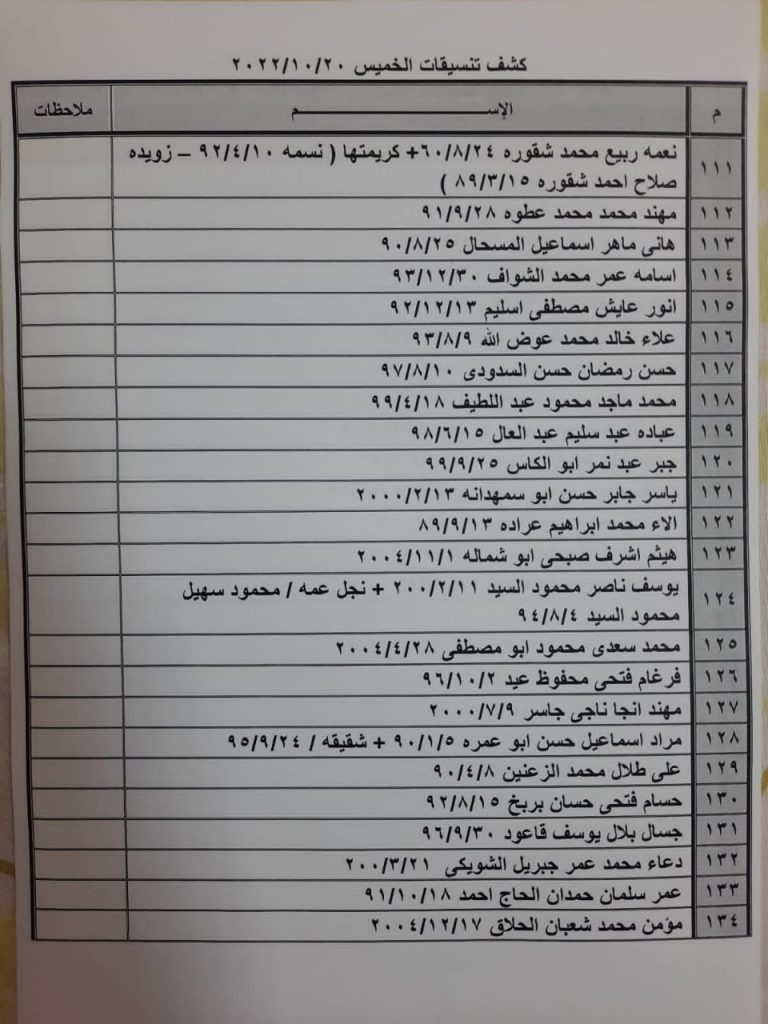 كشف تنسيقات الخميس ٢٠٢٢/١٠/٢٠
م الإســـــــــــم ملاحظات
١١١ نعمه ربيع محمد شقوره ٦٠/٨/٢٤+ كريمتها ( نسمه ٩٢/٤/١٠ – زويده
صلاح احمد شقوره ٨٩/٣/١٥ )
١١٢ مهند محمد محمد عطوه ٩١/٩/٢٨
١١٣ هانى ماهر اسماعيل المسحال ٩٠/٨/٢٥
١١٤ اسامه عمر محمد الشواف ٩٣/١٢/٣٠
١١٥ انور عايش مصطفى اسليم ٩٢/١٢/١٣
١١٦ علاء خالد محمد عوض الله ٩٣/٨/٩
١١٧ حسن رمضان حسن السدودى ٩٧/٨/١٠
١١٨ محمد ماجد محمود عبد اللطيف ٩٩/٤/١٨
١١٩ عباده عبد سليم عبد العال ٩٨/٦/١٥
١٢٠ جبر عبد نمر ابو الكاس ٩٩/٩/٢٥
١٢١ ياسر جابر حسن ابو سمهدانه ٢٠٠٠/٢/١٣
١٢٢ الاء محمد ابراهيم عراده ٨٩/٩/١٣
١٢٣ هيثم اشرف صبحى ابو شماله ٢٠٠٤/١١/١
١٢٤ يوسف ناصر محمود السيد ٢٠٠/٢/١١ + نجل عمه / محمود سهيل
محمود السيد ٩٤/٨/٤
١٢٥ محمد سعدى محمود ابو مصطفى ٢٠٠٤/٤/٢٨
١٢٦ فرغام فتحى محفوظ عيد ٩٦/١٠/٢
١٢٧ مهند انجا ناجى جاسر ٢٠٠٠/٧/٩
١٢٨ مراد اسماعيل حسن ابو عمره ٩٠/١/٥ + شقيقه / ٩٥/٩/٢٤
١٢٩ على طلال محمد الزعنين ٩٠/٤/٨
١٣٠ حسام فتحى حسان بربخ ٩٢/٨/١٥
١٣١ جسال بلال يوسف قاعود ٩٦/٩/٣٠
١٣٢ دعاء محمد عمر جبريل الشويكى ٢٠٠/٣/٢١
١٣٣ عمر سلمان حمدان الحاج احمد ٩١/١٠/١٨
١٣٤ مؤمن محمد شعبان الحلاق ٢٠٠٤/١٢/١٧